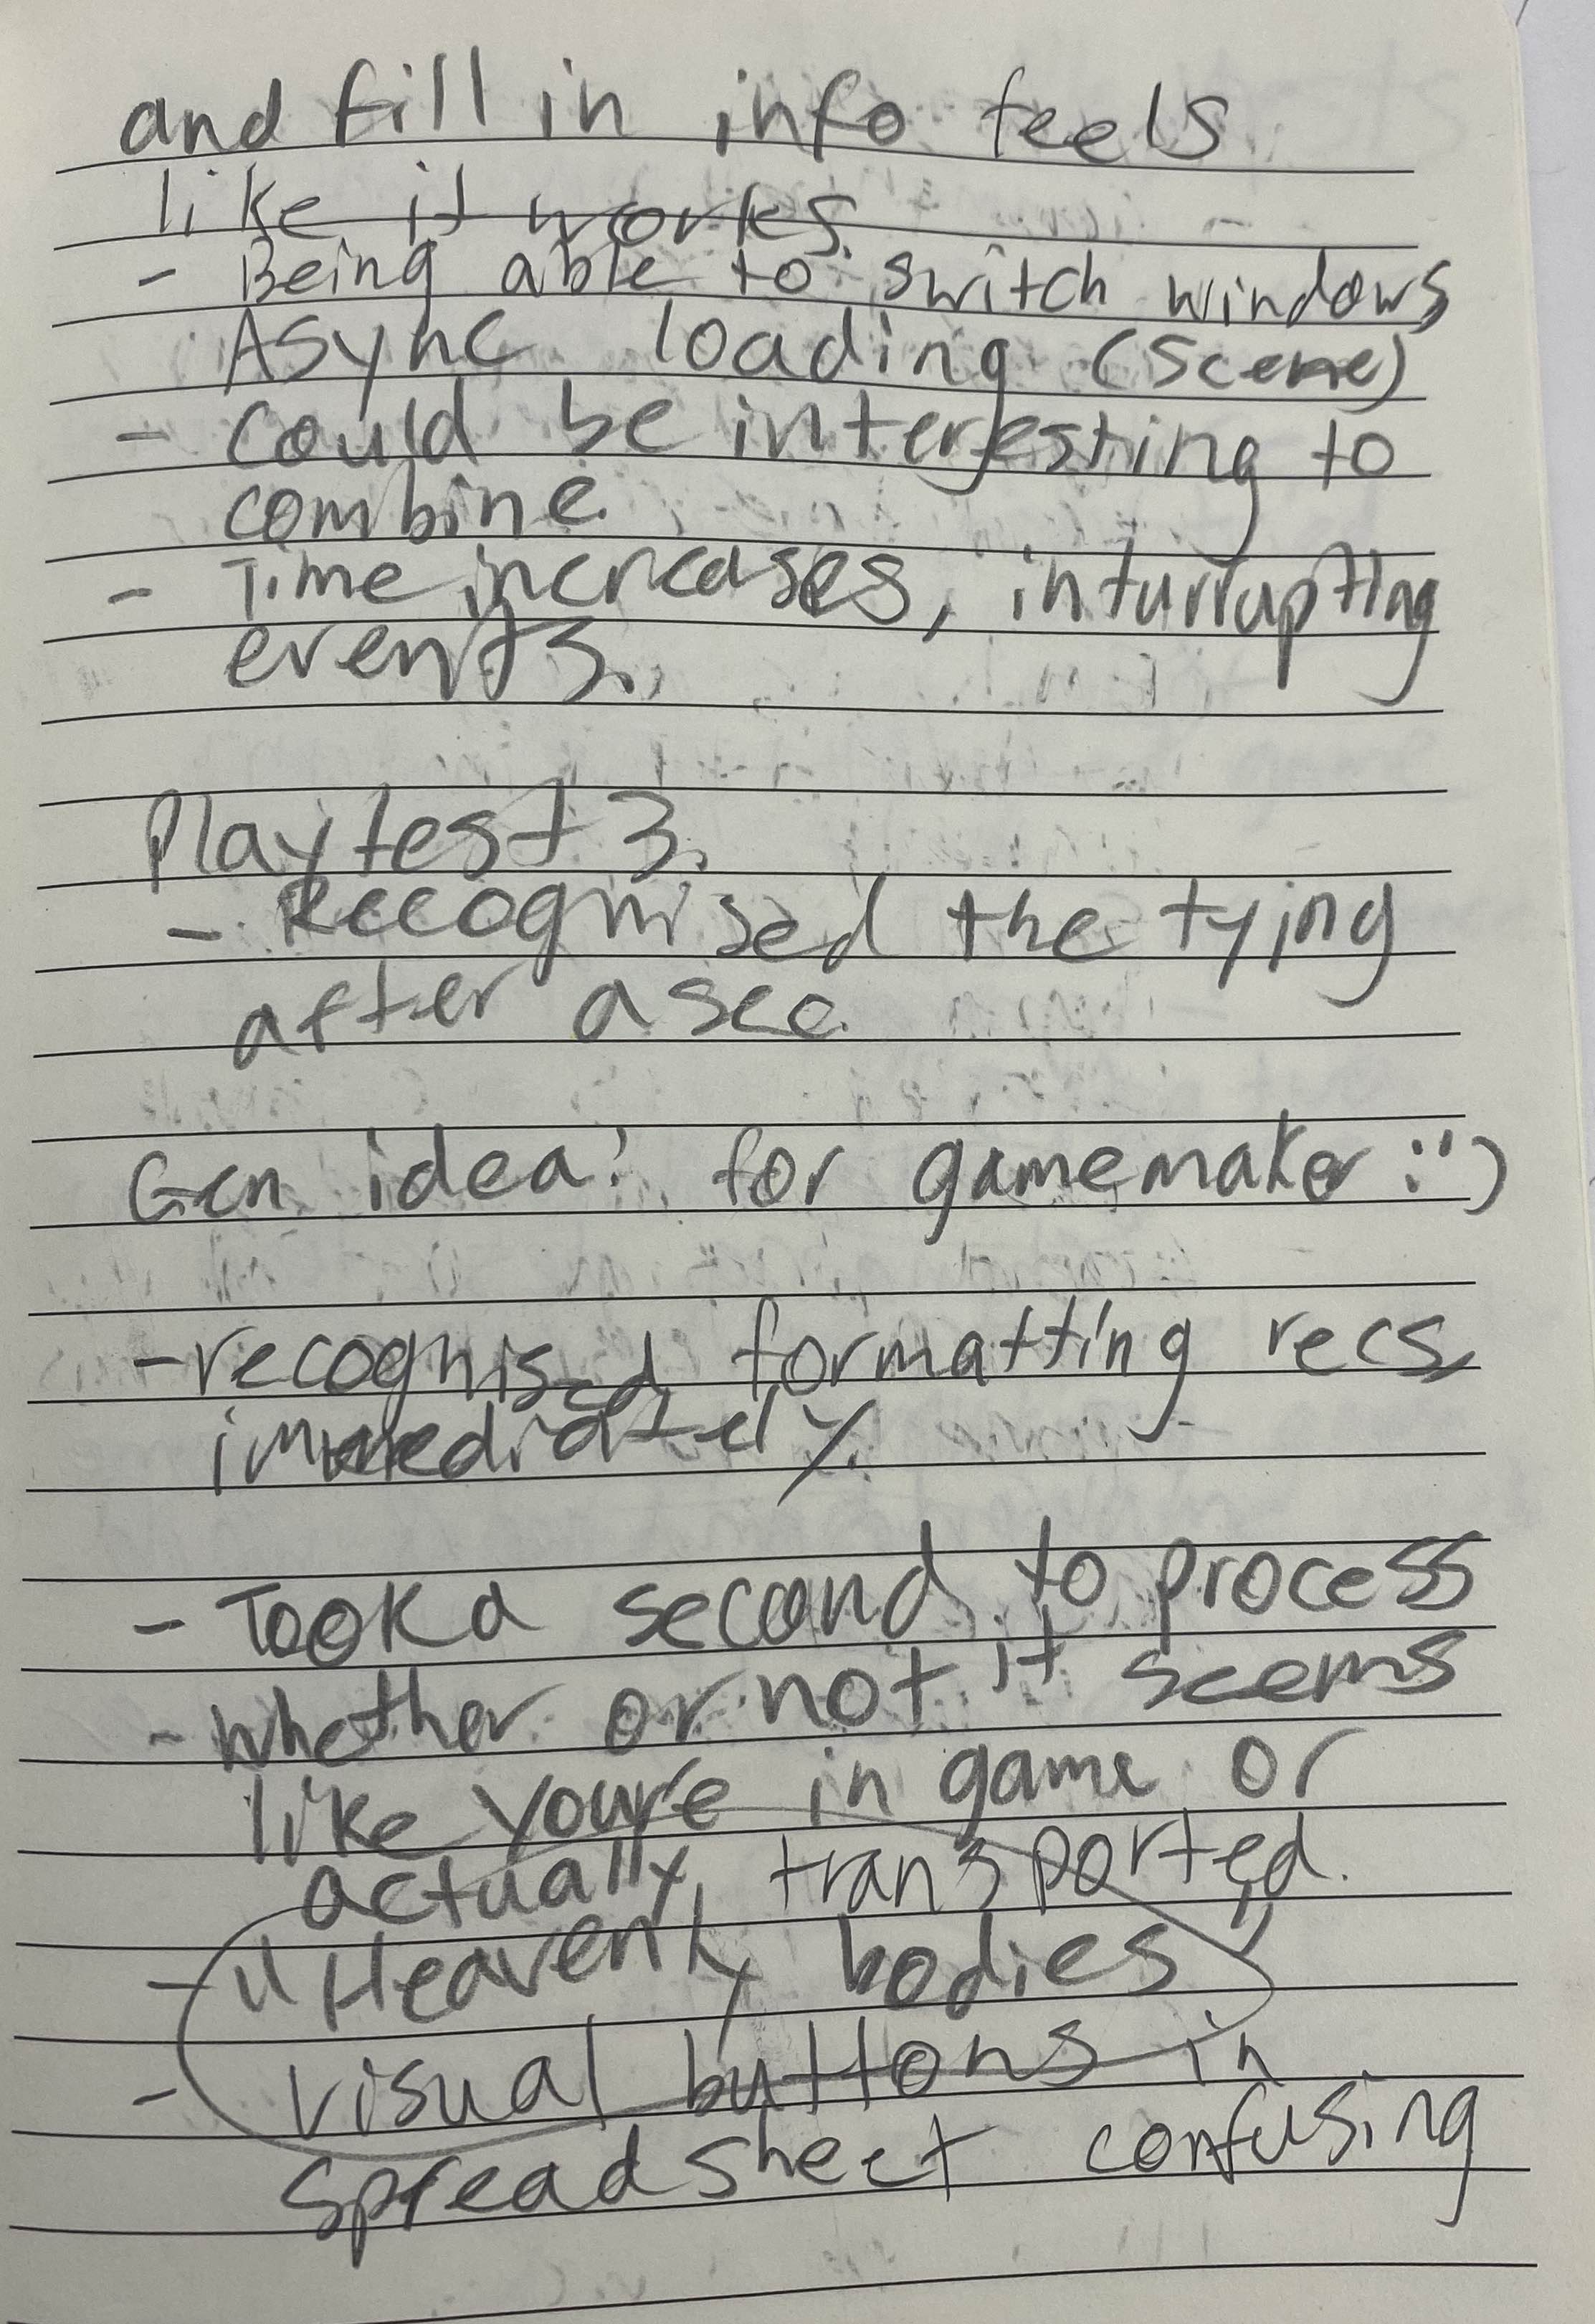 and fill in info feels
like it works.
- Being able to switch windows,
Async loading (scene)
- could be interesting to
combine.
- Time increases, inturrupting
events.
Playtest 3.
- Recognised the tying
after a sec.
Gen idea: for gamemaker :')
- recognised formatting recs,
immediately.
- Took a second to process
- whether or not it seems
like you're in game or
actually transported.
- "Heavenly bodies"
- visual buttons in
spreadsheet confusing